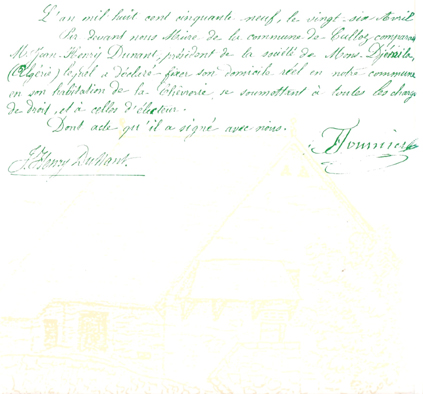 L'an mil huit cent cinquante neuf, le vingt-six Avril
Par devant nous Maire de la commune de Culloz, comparait
Mr Jean-Henri Dunant, président de la société de Mons-Djémila,
(Algérie) lequel a déclaré fixer son domicile réel en notre commune
en son habitation de la, se soumettant à toutes les charges
de droit, et à celles d'électeur.
Dont acte qu'il a signé avec nous.
J. Henry Dunant.